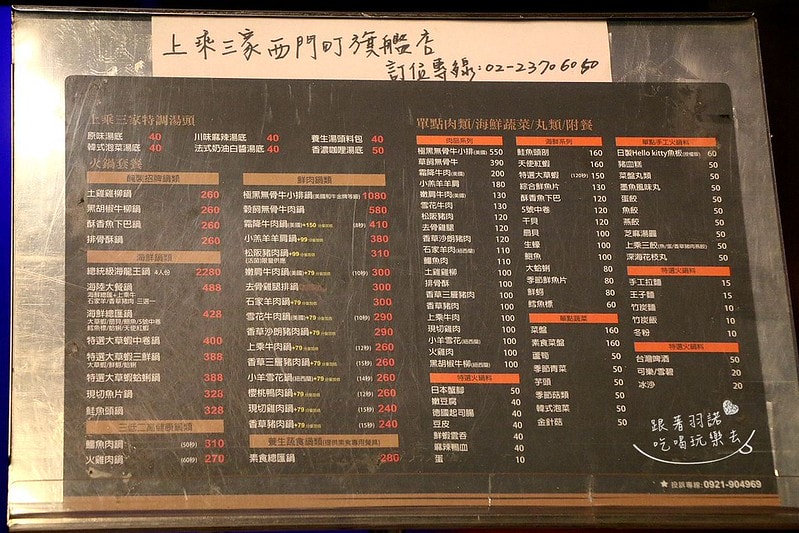 上乘三家西門町旗艦店
訂位專線:02-23706050
上乘三家特調湯頭
原味湯底 40 川味麻辣湯底 40 養生湯頭料包 40
韓式泡菜湯底 40 法式奶油白醬湯底 40 香濃咖哩湯底 50
火鍋套餐
醃製招牌鍋類
土雞雞柳鍋 260
黑胡椒牛柳鍋 260
酥香魚下巴鍋 260
排骨酥鍋 260
海鮮鍋類
總統級海龍王鍋 4人份 2280
海陸大餐鍋 488
海鮮總匯鍋 428
特選大草蝦中卷鍋 400
特選大草蝦三鮮鍋 388
特選大草蝦蛤蜊鍋 388
現切魚片鍋 328
鮭魚頭鍋 328
三低一高健康鍋類
鱷魚肉鍋 (50秒) 310
火雞肉鍋 (60秒) 270
鮮肉鍋類
極黑無骨牛小排鍋 1080
穀飼無骨牛肉鍋 580
霜降牛肉鍋(美國)+150 (8秒) 410
小羔羊羊肩鍋+99 380
松阪豬肉鍋+99 310
嫩肩牛肉鍋(美國) (10秒) 300
去骨雞腿排鍋 300
石家羊肉鍋 300
雪花牛肉鍋(美國)+79 (10秒) 290
香草沙朗豬肉鍋+79 290
上乘牛肉鍋+79 (10秒) 260
香草三層豬肉鍋+79 (15秒) 260
小羊雪花鍋+79 (14秒) 260
櫻桃鴨肉鍋+79 (12秒) 260
現切雞肉鍋+79 (15秒) 240
香草豬肉鍋+79 (15秒) 240
養生蔬食鍋類(提供素食專用餐具)
素食總匯鍋 280
單點肉類/海鮮蔬菜/丸類/附餐
肉品系列
極黑無骨牛小排(美國) 550
穀飼無骨牛 390
霜降牛肉(美國) 200
小羔羊羊肩 180
嫩肩牛肉(美國) 130
雪花牛肉 130
松阪豬肉 120
去骨雞腿 120
香草沙朗豬肉 120
石家羊肉(紐西蘭) 110
鱷魚肉 110
土雞雞柳 100
排骨酥 100
香草三層豬肉 100
香草豬肉 100
上乘牛肉 100
現切雞肉 100
小羊雪花(紐西蘭) 100
火雞肉 100
黑胡椒牛柳(紐西蘭) 100
特選火鍋料
日本蟹腳 50
嫩豆腐 40
德國起司腸 40
豆皮 40
鮮蝦雲吞 40
麻辣鴨血 40
蛋 10
海鮮系列
鮭魚頭剖 160
天使紅蝦 160
特選大草蝦 (120秒) 150
綜合鮮魚片 130
酥香魚下巴 120
5號中卷 120
干貝 120
扇貝 100
生蠔 100
鮑魚 100
大蛤蜊 80
季節鮮魚片 80
鮮蚵 80
鱈魚標 60
單點蔬菜
菜盤 160
素食菜盤 160
蘆筍 50
季節青菜 50
芋頭 50
季節菇類 50
韓式泡菜 50
金針菇 50
單點手工火鍋料
日製Hello kitty魚板 60
豬血糕 50
菜盤丸類 50
墨魚風味丸 50
蛋餃 50
魚餃 50
燕餃 50
芝麻湯圓 50
上乘三餃 50
深海花枝丸 50
特選火鍋料
手工拉麵 15
王子麵 15
竹炭麵 10
竹炭飯 10
冬粉 10
特選火鍋料
台灣啤酒 50
可樂/雪碧 20
冰沙 20
跟著羽諾
吃喝玩樂去
★投訴專線:0921-904969